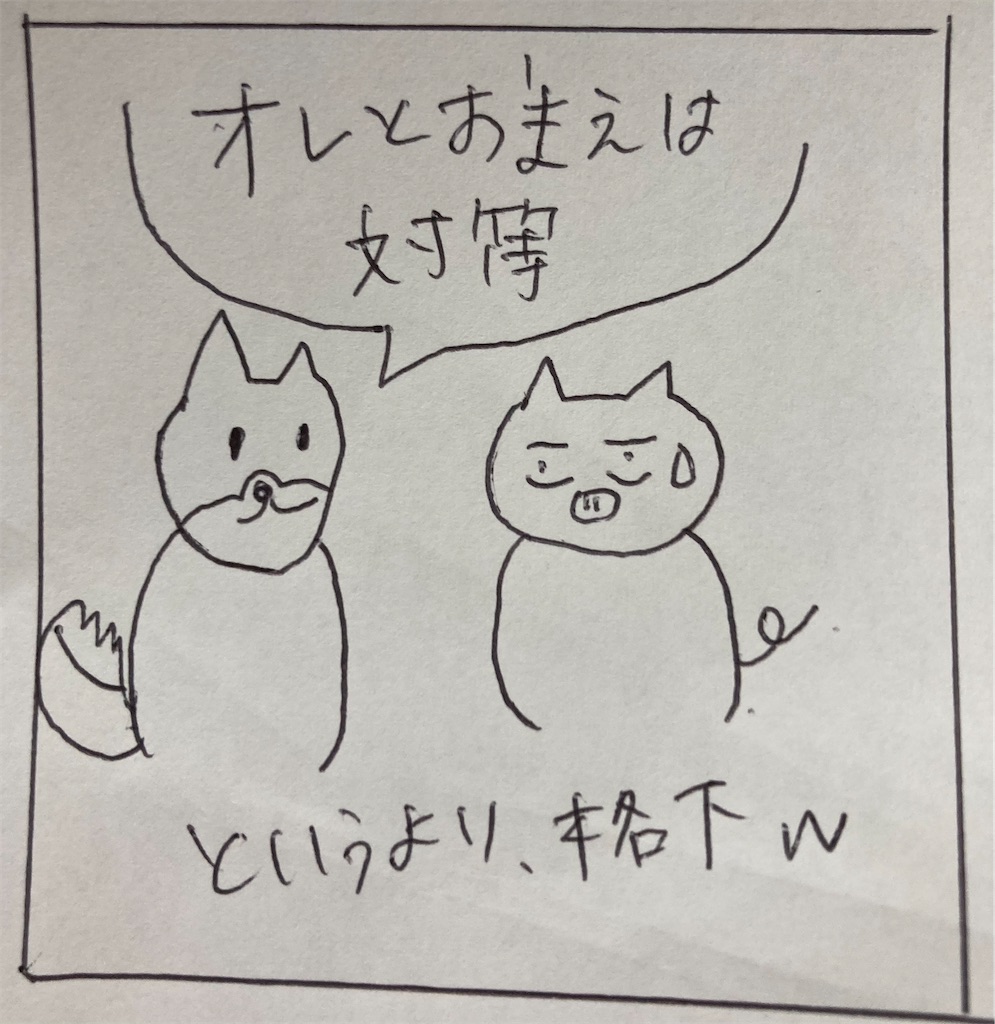 オレとおまえは
対等
というより、格下w